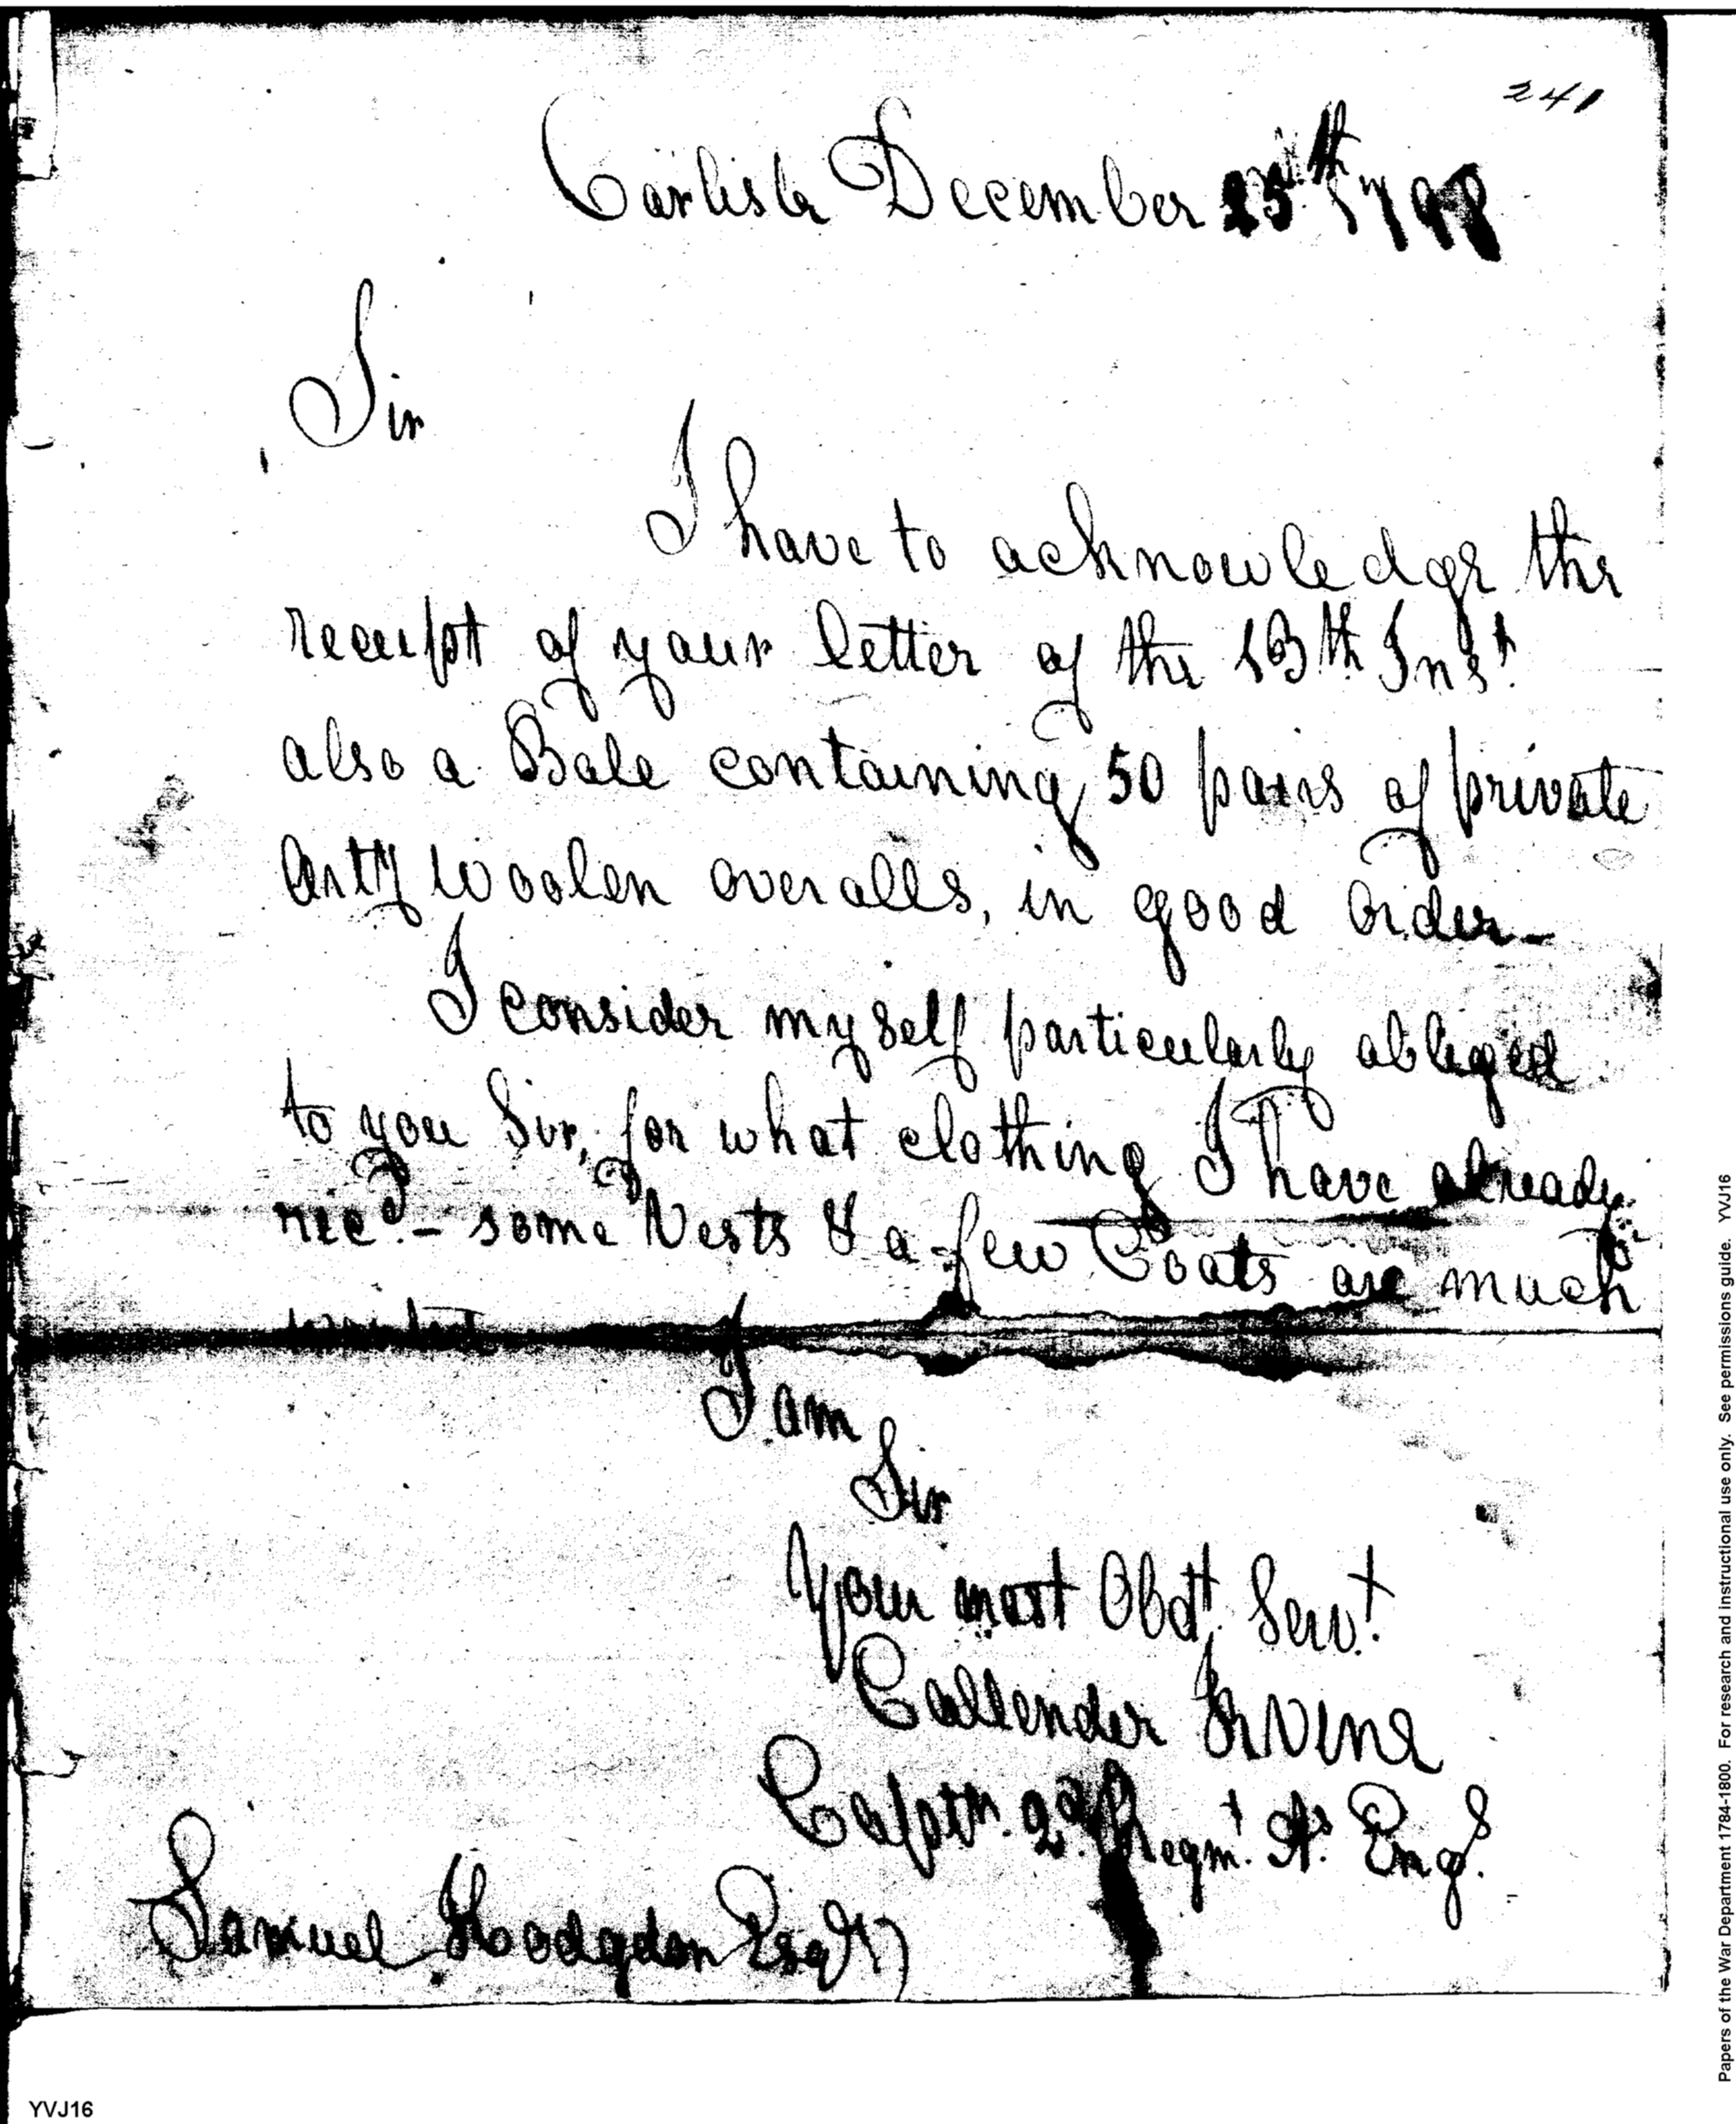 241
Carlisle December 25th 1798
Sir
I have to acknowledge the
receipt of your letter of the 13th Inst.
also a Bale containing 50 pairs of private
Arty Woolen overalls, in good order_
I consider myself particularly obliged
to you Sir, for what clothing I have already
recd. – some Vests & a few Coats are much
wanted
I am
Sir
Your most Obdt. Servt.
Callender Irvine
Captn. 2d. Regmt. As. Engs.
Samuel Hodgdon Esqr
YVJ16
Papers of the War Department 1784-1800. For research and instructional use only. See permissions guide. YVJ16